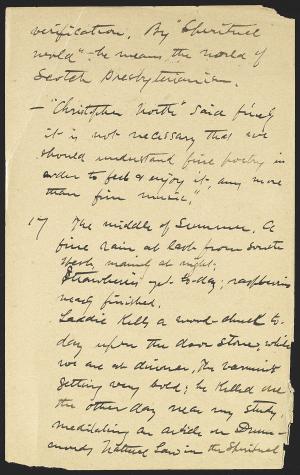 verification. By "Spiritual
world" he means, the world of
Scotch Presbyterianism.
— "Christopher North" said finely
it is not necessary that we
should understand fine poetry in
order to feel & enjoy it, any more
than fine music."
17 The middle of Summer. A
fine rain at last from South
West, mainly at night;
Strawberries yet to-day; raspberries
nearly finished.
Laddie kills a wood-chuck to-
day upon the door stone, while
we are at dinner, The varmints
getting very bold; he killed one
the other day near my study.
Meditating an article on Drum-
monds Natural Law in the Spiritual